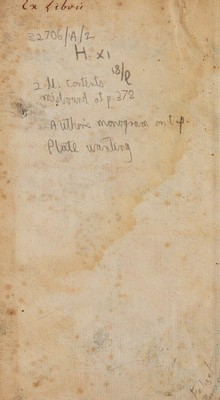 Ex Libris
32706/A/2
H. XI
18/R
2 ll. Contents
misbound at p. 372
Author's monogram on t.p.
Plate wanting